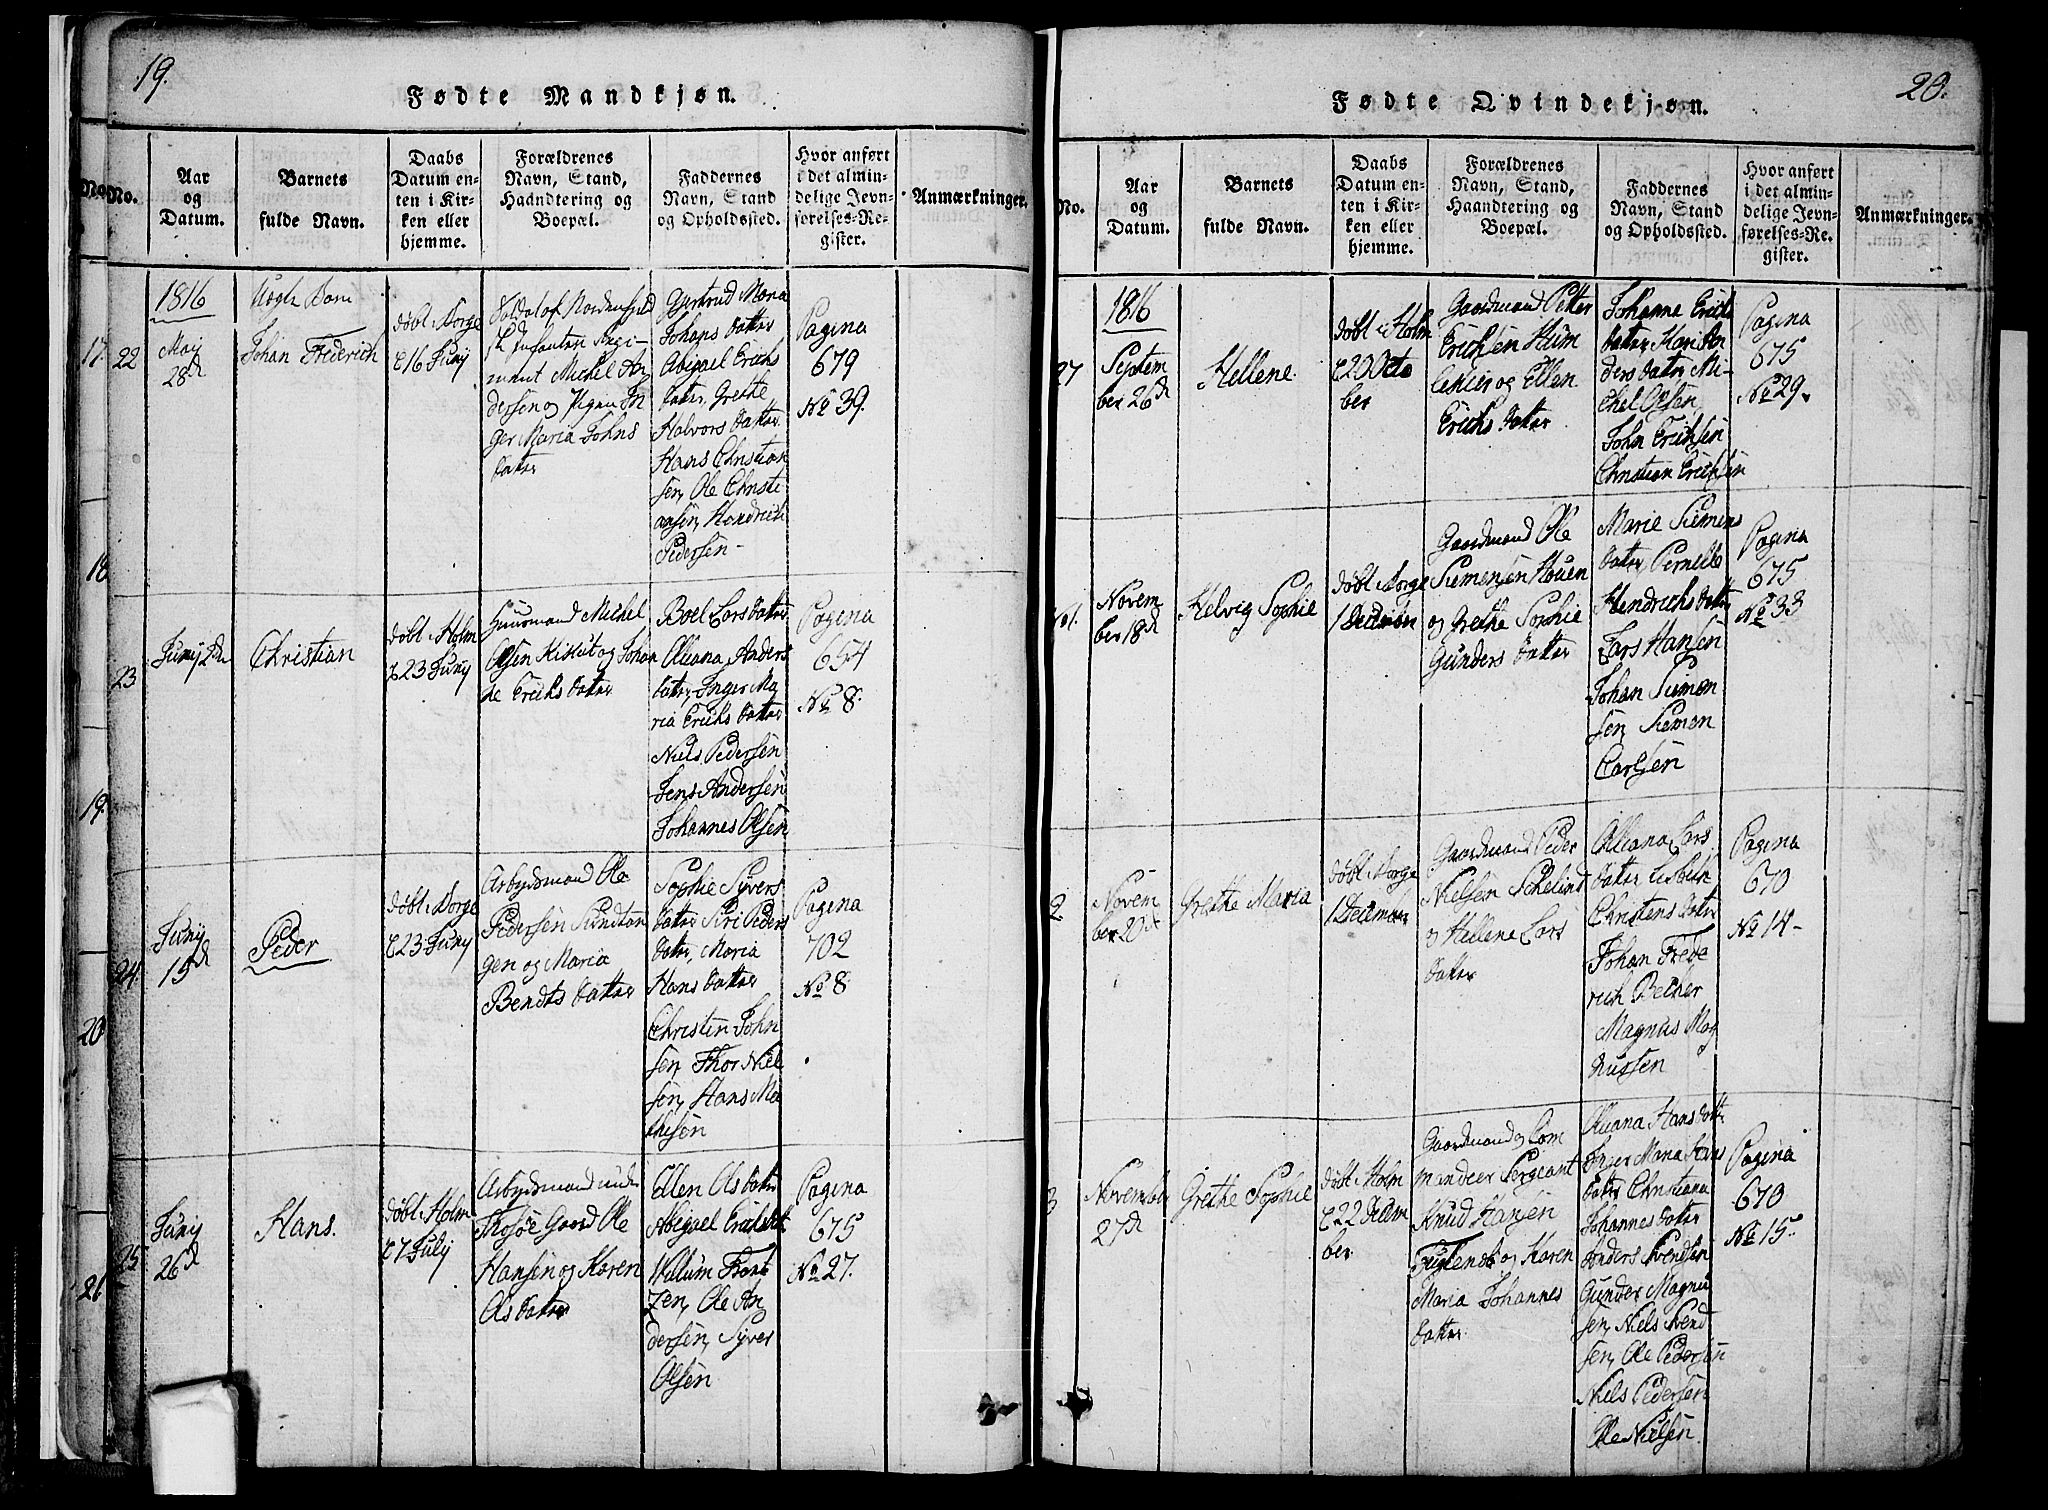 19.
Fødte Mandkjøn.
No.
No.
Aar
og
Datum.
Barnets
fulde Navn.
Daabs
Datum en-
ten i Kir-
ken eller
hjemme.
Forældrenes
Navn, Stand,
Haandtering og
Boepæl.
Faddernes
Navn, Stand
og Opholdssted.
Hvor anført
i det almin-
delige Jevn-
førelses-Re-
gister.
Anmærkninger.
17.
18
19.
20
21
22
1816
May
28d
Uægte Barn
Johan Frederich
døbt i Borge
16 Junij
Soldat af Nordenfield
ske Infanterie Regi-
ment Michel An
dersen og Pigen In
ger Maria Johns
datter
Gjertrud Maria
Johans datter
Abigael Erichs
datter, Grethe
Halvors datter
Hans Christian
sen, Ole Christi
ansen, Hendrich
Pedersen
Pagina
679
No 39.
23
Junij 2d
Christian
døbt i Holm
23 Junij
Huusmand Michel
Olsen Kihlut og Johan
ne Erichs datter
Boel Lars datter
Olliana Anders
datter, Inger Ma
ria Erichs datter
Niels Pedersen
Jens Andersen
Johannes Olsen
Pagina
654
No 8.
24
Junij
15d
Peder
døbt i Borge
23 Junij
Arbeydsmand Ole
Pedersen Sundtan
gen og Maria
Bendts datter
Sophie Syvers
datter Siri Peders
datter, Maria
Hans datter
Christen John
sen, Thor Niel
sen, Hans Ma
thisen
Pagina
702
No 8.
25
Junij
26d
Hans.
døbt i Holm
7 Julij
Arbeydsmand under
Thosøe Gaard Ole
Hansen og Karen
Ols datter
Ellen Ols datter
Abigael Erichs datt
Willum Frant
zen, Ole An
dersen, Syver
Olsen
Pagina
675
No 27.
20.
Fødte Qvindekjøn.
No.
Aar
og
Datum.
Barnets
fulde Navn.
Daabs
Datum en-
ten i Kir-
ken eller
hjemme.
Forældrenes
Navn, Stand,
Haandtering og
Boepæl.
Faddernes
Navn, Stand
og Opholdssted.
Hvor anført
i det almin-
delige Jevn-
førelses-Re-
gister.
Anmærkninger.
27
1816
Septem
ber 26d
Hellene
døbt i Holm
20 Octo
ber
Gaardmand Petter
Erichsen Hum
lekier og Ellen
Erichs datter
Johanne Erichs
datter, Mari An
ders datter Mi-
chel Olsen
John Erichsen
Christian Erichsen
Pagina
675
No 29.
Novem
ber 18d
Helvig Sophie
døbt i Borge
1 December
Gaardmand Ole
Siemensen Houen
og Grethe Sophie
Gunders datter
Marie Siemens
datter, Pernille
Hendrichs datter
Lars Hansen
Johan Siemen
sen, Siemen
Carlsen
Pagina
675
No 33
2
Novem
ber 20d
Grethe Maria
døbt i Borge
1 December
Gaardmand Peder
Nielsen Schelind
og Hellene Lars
datter
Olliana Lars
datter Lisbeth
Christens datter
Johan Frede
rich Becher
Magnus Mag
nussen
Pagina
670
No 14
3
November
27d
Grethe Sophie
døbt i Holm
22 Decem
ber
Gaardmand og Com
mandeer Sergeant
Knud Hansen
og Karen
Maria Johannes
datter.
Olliana Hans datter
Inger Maria Hans
datter Christiana
Johannes datter
Anders Svendsen
Gunder Magnu
sen, Niels Svend
sen, Ole Pedersen
Niels Pedersen
Ole Nielsen.
Pagina
670
No 15.